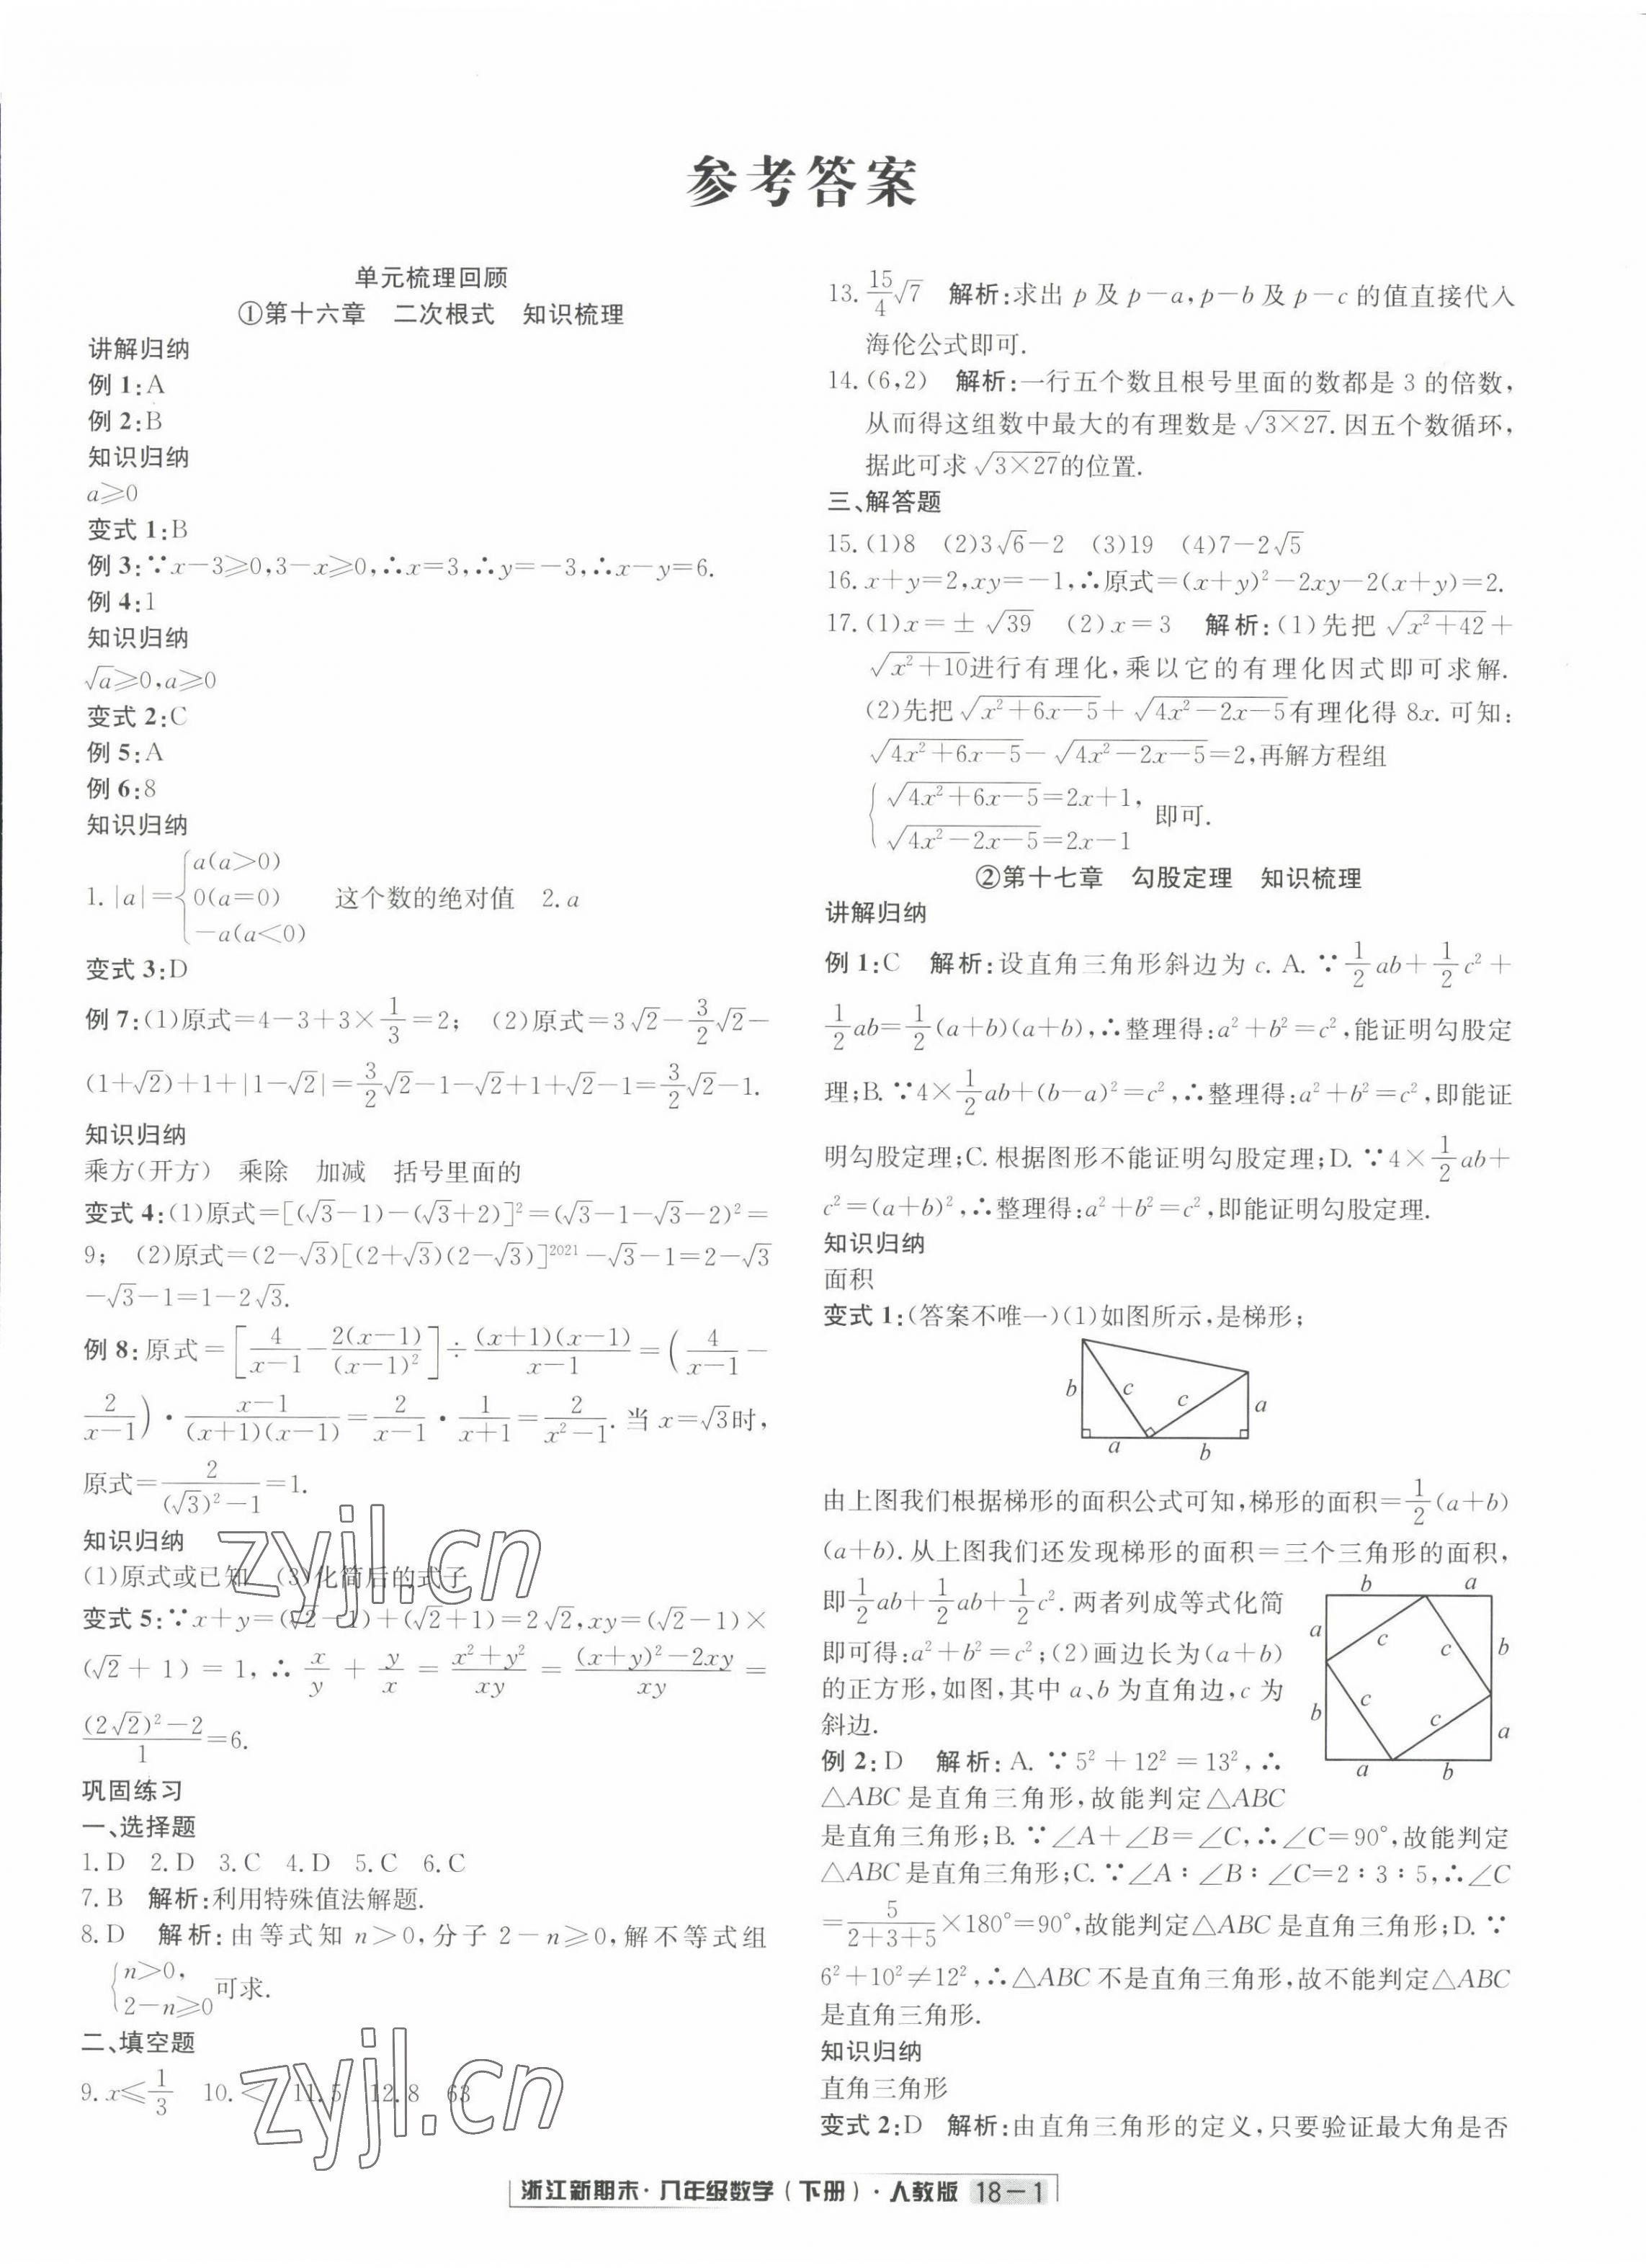 参考答案
单元梳理回顾
①第十六章　二次根式　知识梳理
讲解归纳
例 1:A
例 2:B
知识归纳
a≥0
变式 1:B
例 3:∵x−3≥0,3−x≥0,∴x=3,∴y=−3,∴x−y=6.
例 4:1
知识归纳
√a≥0,a≥0
变式 2:C
例 5:A
例 6:8
知识归纳
1. |a|={a(a>0)　0(a=0)　−a(a<0)　这个数的绝对值　2. a
变式 3:D
例 7:(1)原式=4−3+3×1/3=2;　(2)原式=3√2−3/2√2−
(1+√2)+1+|1−√2|=3/2√2−1−√2+1+√2−1=3/2√2−1.
知识归纳
乘方(开方)　乘除　加减　括号里面的
变式 4:(1)原式=[(√3−1)−(√3+2)]²=(√3−1−√3−2)²=
9;　(2)原式=(2−√3)[(2+√3)(2−√3)]²⁰²¹−√3−1=2−√3
−√3−1=1−2√3.
例 8:原式=[4/(x−1)−2(x−1)/(x−1)²]÷(x+1)(x−1)/(x−1)=(4/(x−1)−
2/(x−1))·(x−1)/((x+1)(x−1))=2/(x−1)·1/(x+1)=2/(x²−1).当 x=√3时,
原式=2/((√3)²−1)=1.
知识归纳
(1)原式或已知　(3)化简后的式子
变式 5:∵x+y=(√2−1)+(√2+1)=2√2,xy=(√2−1)×
(√2+1)=1,∴x/y+y/x=(x²+y²)/xy=((x+y)²−2xy)/xy=
((2√2)²−2)/1=6.
巩固练习
一、选择题
1. D　2. D　3. C　4. D　5. C　6. C
7. B　解析:利用特殊值法解题.
8. D　解析:由等式知 n>0,分子 2−n≥0,解不等式组
{n>0,　2−n≥0 可求.
二、填空题
9. x≤1/3　10. <　11. 5　12. 8　63
13. 15/4√7　解析:求出 p 及 p−a,p−b 及 p−c 的值直接代入
海伦公式即可.
14. (6,2)　解析:一行五个数且根号里面的数都是 3 的倍数,
从而得这组数中最大的有理数是√(3×27).因五个数循环,
据此可求√(3×27)的位置.
三、解答题
15. (1)8　(2)3√6−2　(3)19　(4)7−2√5
16. x+y=2,xy=−1,∴原式=(x+y)²−2xy−2(x+y)=2.
17. (1)x=±√39　(2)x=3　解析:(1)先把√(x²+42)+
√(x²+10)进行有理化,乘以它的有理化因式即可求解.
(2)先把√(x²+6x−5)+√(4x²−2x−5)有理化得 8x.可知:
√(4x²+6x−5)−√(4x²−2x−5)=2,再解方程组
{√(4x²+6x−5)=2x+1,　√(4x²−2x−5)=2x−1　即可.
②第十七章　勾股定理　知识梳理
讲解归纳
例 1:C　解析:设直角三角形斜边为 c. A. ∵1/2ab+1/2c²+
1/2ab=1/2(a+b)(a+b),∴整理得:a²+b²=c²,能证明勾股定
理;B. ∵4×1/2ab+(b−a)²=c²,∴整理得:a²+b²=c²,即能证
明勾股定理;C. 根据图形不能证明勾股定理;D. ∵4×1/2ab+
c²=(a+b)²,∴整理得:a²+b²=c²,即能证明勾股定理.
知识归纳
面积
变式 1:(答案不唯一)(1)如图所示,是梯形;
b　c　c　a
a　b
由上图我们根据梯形的面积公式可知,梯形的面积=1/2(a+b)
(a+b).从上图我们还发现梯形的面积=三个三角形的面积,
即1/2ab+1/2ab+1/2c².两者列成等式化简
即可得:a²+b²=c²;(2)画边长为(a+b)
的正方形,如图,其中 a、b 为直角边,c 为
斜边.
b　a
a　c　c　b
b　c　c　a
a　b
例 2:D　解析:A. ∵5²+12²=13²,∴
△ABC 是直角三角形,故能判定△ABC
是直角三角形;B. ∵∠A+∠B=∠C,∴∠C=90°,故能判定
△ABC 是直角三角形;C. ∵∠A:∠B:∠C=2:3:5,∴∠C
=5/(2+3+5)×180°=90°,故能判定△ABC 是直角三角形;D. ∵
6²+10²≠12²,∴△ABC 不是直角三角形,故不能判定△ABC
是直角三角形.
知识归纳
直角三角形
变式 2:D　解析:由直角三角形的定义,只要验证最大角是否
浙江新期末·八年级数学(下册)·人教版 18−1
zyjl.cn
zyjl.cn